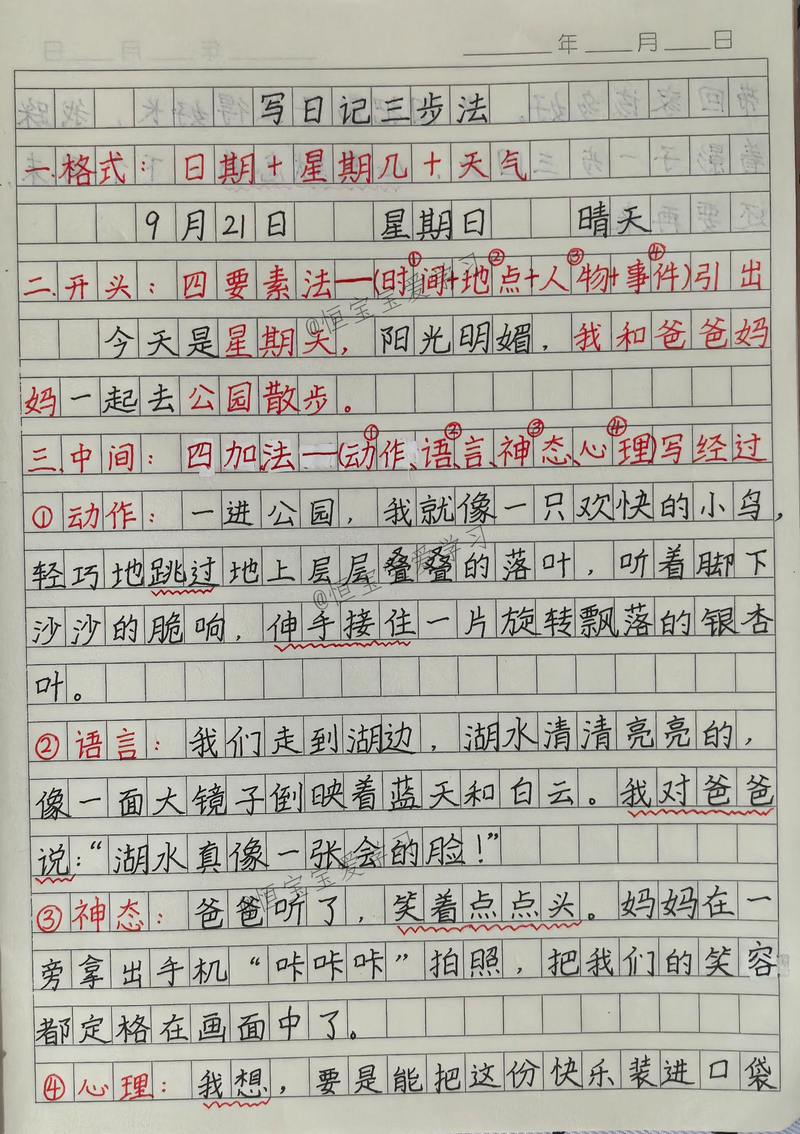 年 月 日
写日记三步法
一.格式：日期+星期几+天气
9月21日 星期日 晴天
二.开头：四要素法——(①时间+②地点+③人物+④事件)引出
今天是星期天，阳光明媚，我和爸爸妈
妈一起去公园散步。
三.中间：四加法—(①动作、②语言、③神态、④心理)写经过
①动作：一进公园，我就像一只欢快的小鸟，
轻巧地跳过地上层层叠叠的落叶，听着脚下
沙沙的脆响，伸手接住一片旋转飘落的银杏
叶。
②语言：我们走到湖边，湖水清清亮亮的，
像一面大镜子倒映着蓝天和白云。我对爸爸
说：“湖水真像一张会的脸！”
③神态：爸爸听了，笑着点点头。妈妈在一
旁拿出手机“咔咔咔”拍照，把我们的笑容
都定格在画面中了。
④心理：我想，要是能把这份快乐装进口袋
@恒宝宝爱学习
@恒宝宝爱学习
恒宝宝爱学习